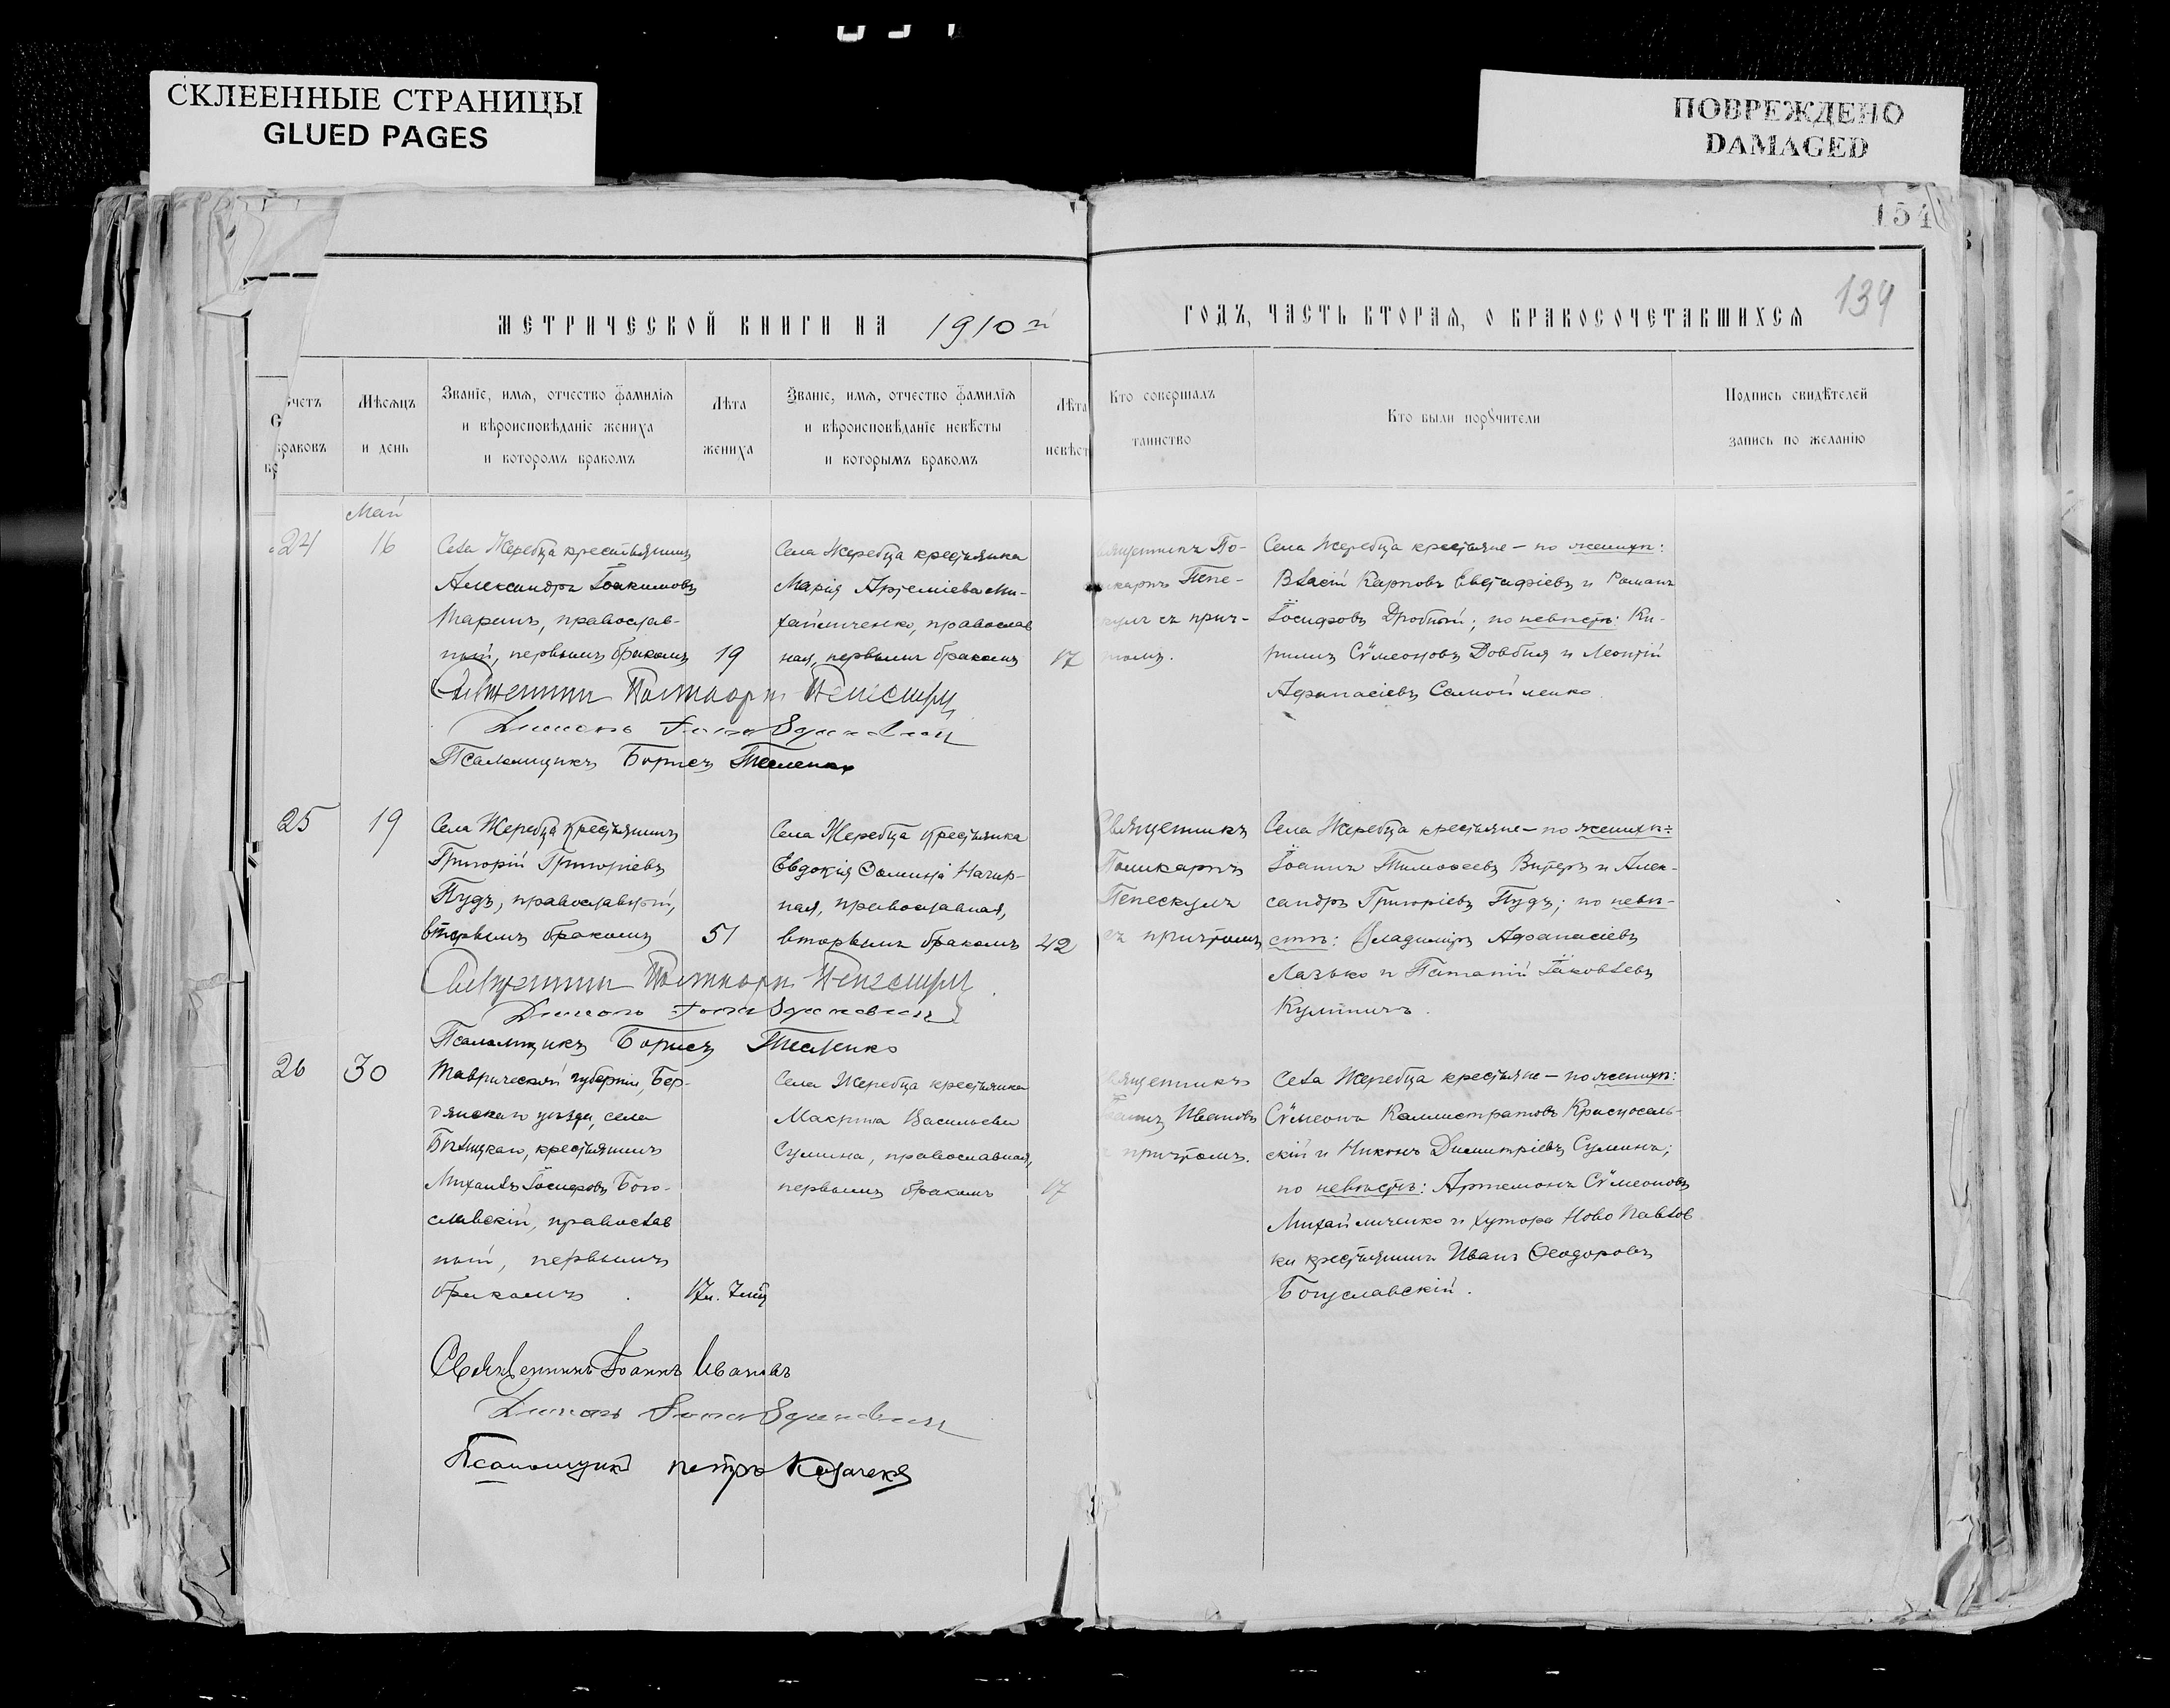 СКЛЕЕННЫЕ СТРАНИЦЫ
GLUED PAGES
ПОВРЕЖДЕНО
DAMAGED
154
139
МЕТРИЧЕСКОЙ КНИГИ НА 1910й
ГОДЪ, ЧАСТЬ ВТОРАЯ, О БРАКОСОЧЕТАВШИХСЯ
четъ
браковъ
Мѣсяцъ
и день
Званіе, имя, отчество фамилія
и вѣроисповѣданіе жениха
и которомъ бракомъ
Лѣта
жениха
Званіе, имя, отчество фамилія
и вѣроисповѣданіе невѣсты
и которымъ бракомъ
Лѣта
невѣст
Кто совершалъ
таинство
Кто были поручители
Подпись свидѣтелей
запись по желанію
Май
24
16
Села Жеребца крестьянинъ
Александръ Іоакимовъ
православ-
ный, первымъ бракомъ
19
Села Жеребца крестьянка
Марія Артеміева Ми-
хайличенко, православ
ная, первымъ бракомъ
17
По-
Пепе-
съ прич-
томъ.
Села Жеребца крестьяне – по женихѣ:
Власій Карповъ Евстафіевъ и Романъ
Іосифовъ Дробный; по невѣстѣ: Ки-
риллъ Сѵмеоновъ Довбня и Леонтій
Афанасіевъ Самойленко.
Псаломщикъ Борисъ
25
19
Села Жеребца крестьянинъ
Григорій Григоріевъ
Пудъ, православный,
вторымъ бракомъ
51
Села Жеребца крестьянка
Евдокія
ная, православная,
вторымъ бракомъ
42
Священникъ
Поликарпъ
Пепескулъ
съ причтомъ
Села Жеребца крестьяне – по женихѣ:
Іоаннъ Тимоѳеевъ Витеръ и Алек-
сандръ Григоріевъ Пудъ; по невѣ-
стѣ: Владиміръ Афанасіевъ
Лазько и Іаковлевъ
Псаломщикъ Борисъ
26
30
Таврической губерніи, Бер-
дянскаго уѣзда, села
крестьянинъ
Михаилъ Іосифовъ Бого-
славскій, православ
ный, первымъ
бракомъ.
Села Жеребца крестьянка
Макрина Васильева
Сумина, православная,
первымъ бракомъ
17
Священникъ
Іоаннъ Ивановъ
съ причтомъ.
Села Жеребца крестьяне – по женихѣ:
Сѵмеонъ Каллистратовъ Красносель-
скій и Никонъ Димитріевъ Суминъ;
по невѣстѣ: Артемонъ Сѵмеоновъ
Михайличенко и хутора Ново Павлов
ки крестьянинъ Иванъ Ѳеодоровъ
Богуславскій.
Священникъ Іоаннъ Ивановъ
Псаломщикъ Петръ